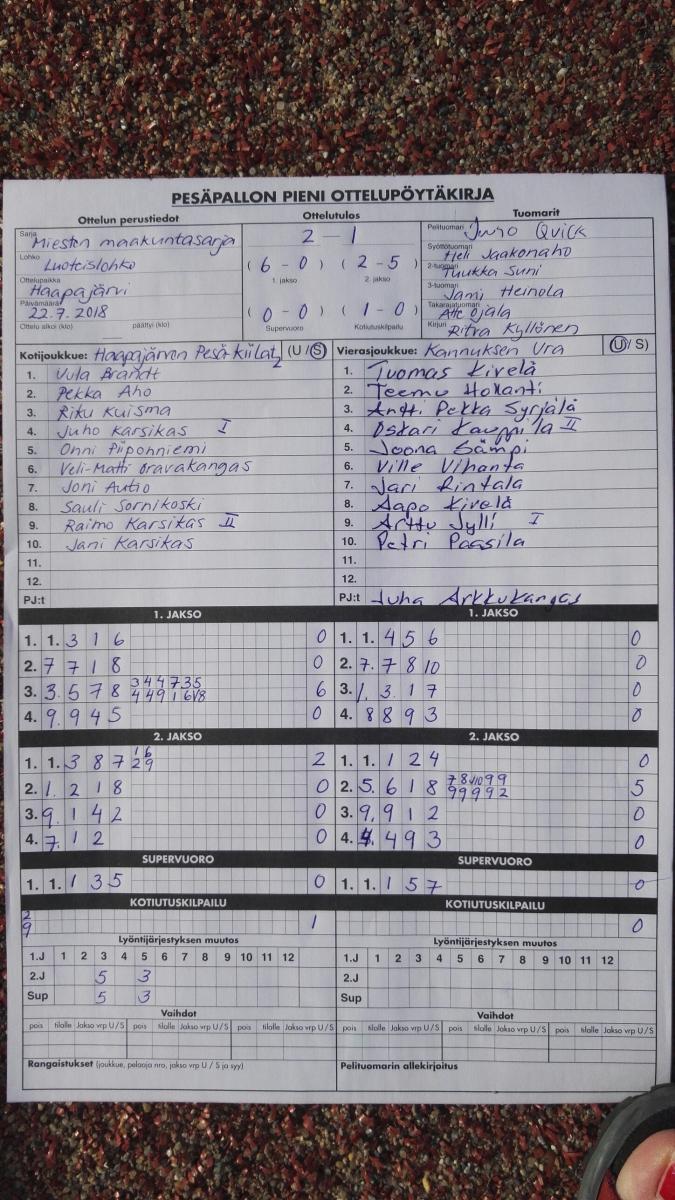 PESÄPALLON PIENI OTTELUPÖYTÄKIRJA
Ottelun perustiedot Ottelutulos Tuomarit
Sarja Miesten maakuntasarja
Lohko Luoteislohko
Ottelupaikka Haapajärvi
Päivämäärä 22.7.2018
Ottelu alkoi (klo) päättyi (klo)
2 - 1
( 6 - 0 ) ( 2 - 5 )
1. jakso 2. jakso
( 0 - 0 ) ( 1 - 0 )
Supervuoro Kotiutuskilpailu
Pelituomari Quick
Syöttötuomari Heli Jaakonaho
2-tuomari Tuukka Suni
3-tuomari Jami Heinola
Takarajatuomari Atte Ojala
Kirjuri Ritva Kyllönen
Kotijoukkue: Haapajärven Pesä Kiilat 2 (U / S)
1. Brandt
2. Pekka Aho
3. Riku Kuisma
4. Juho Karsikas I
5. Onni Piipponiemi
6. Veli-Matti Oravakangas
7. Joni Autio
8. Sauli Sornikoski
9. Raimo Karsikas II
10. Jani Karsikas
11.
12.
PJ:t
Vierasjoukkue: Kannuksen Ura (U / S)
1. Tuomas Kivelä
2. Teemu Hokanti
3. Antti Pekka Syrjälä
4. Oskari Kauppila II
5. Joona Sämpi
6. Ville Vihanta
7. Jari Rintala
8. Aapo Kivelä
9. Arttu Jylli I
10. Petri Paasila
11.
12.
PJ:t Juha Arkkukangas
1. JAKSO 1. JAKSO
1. 1. 3 1 6 0 1. 1. 4 5 6 0
2. 7 7 1 8 0 2. 7. 7 8 10 0
3. 3. 5 7 8 3 4 4 7 3 5 6 3. 1. 3. 1 7 0
4 4 9 1 6
4. 9. 9 4 5 0 4. 8 8 9 3 0
2. JAKSO 2. JAKSO
1. 1. 3 8 7 1 6 2 1. 1. 1 2 4 0
2 9
2. 1. 2 1 8 0 2. 5. 6 1 8 7 8 10 9 9 5
9 9 9 9 2
3. 9. 1 4 2 0 3. 9, 9 1 2 0
4. 7. 1 2 0 4. 4. 4 9 3 0
SUPERVUORO SUPERVUORO
1. 1. 1 3 5 0 1. 1. 1 5 7 0
KOTIUTUSKILPAILU KOTIUTUSKILPAILU
2
9 1 0
Lyöntijärjestyksen muutos Lyöntijärjestyksen muutos
1.J 1 2 3 4 5 6 7 8 9 10 11 12 1.J 1 2 3 4 5 6 7 8 9 10 11 12
2.J 5 3 2.J
Sup 5 3 Sup
Vaihdot Vaihdot
pois tilalle Jakso vrp U / S pois tilalle Jakso vrp U / S pois tilalle Jakso vrp U / S pois tilalle Jakso vrp U / S pois tilalle Jakso vrp U / S pois tilalle Jakso vrp U / S
Rangaistukset (joukkue, pelaaja nro, jakso vrp U / S ja syy) Pelituomarin allekirjoitus